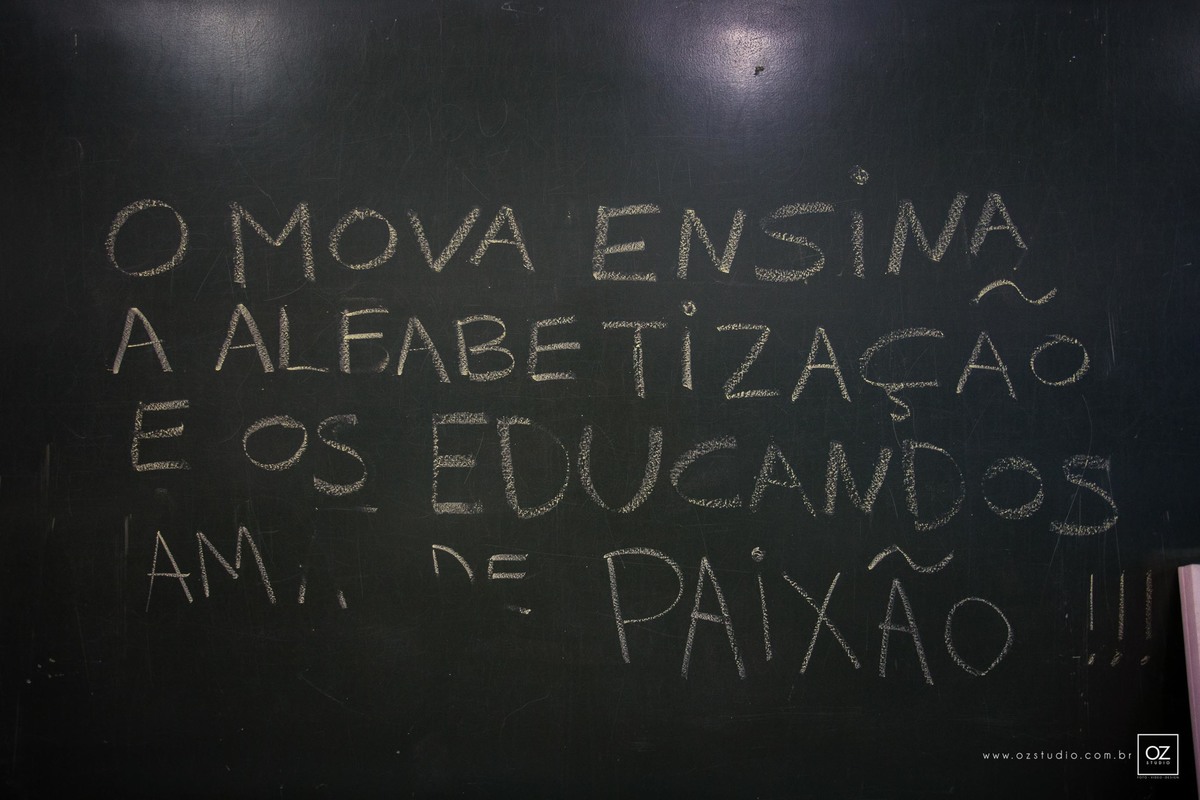 O MOVA ENSINA
A ALFABETIZAÇÃO
E OS EDUCANDOS
DE PAIXÃO !!!
www.ozstudio.com.br
OZ
STUDIO